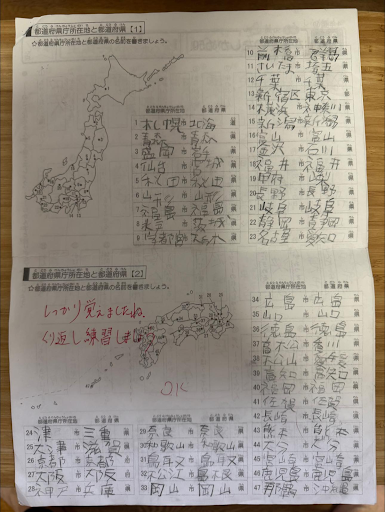 都道府県庁所在地と都道府県【1】
☆都道府県庁所在地と都道府県の名前を書きましょう。
都道府県庁所在地 都道府県
1 札幌 市 北海 道
2 青森 市 青森 県
3 盛岡 市
4 仙台 市 宮城 県
5 秋田 市 秋田 県
6 山形 市 山形 県
7 福島 市 福島 県
8 水戸 市 茨城 県
9 宇都宮 市 栃木 県
10 前橋 市 群馬 県
11 さいたま 市 埼玉 県
12 千葉 市 千葉 県
13 新宿区 東京
14 横浜 市 神奈川 県
15 新潟 市 新潟 県
16 富山 市 富山 県
17 金沢 市 石川 県
18 福井 市 福井 県
19 甲府 市 山梨 県
20 長野 市 長野 県
21 岐阜 市 岐阜 県
22 静岡 市 静岡 県
23 名古屋 市 愛知 県
都道府県庁所在地と都道府県【2】
☆都道府県庁所在地と都道府県の名前を書きましょう。
しっかり覚えましたね。
くり返し練習し
OK
都道府県庁所在地 都道府県
24 津 市 三重 県
25 大津 市 滋賀 県
26 京都 市 京都
27 大阪 市 大阪
28 神戸 市 兵庫 県
29 奈良 市 奈良 県
30 和歌山 市 和歌山 県
31 鳥取 市 鳥取 県
32 松江 市 島根 県
33 岡山 市 岡山 県
34 広島 市 広島 県
35 山口 市 山口 県
36 徳島 市 徳島 県
37 高松 市 香川 県
38 松山 市 愛媛 県
39 高知 市 高知 県
40 福岡 市 福岡 県
41 佐賀 市 佐賀 県
42 長崎 市 長崎 県
43 熊本 市 熊本 県
44 大分 市 大分 県
45 宮崎 市 宮崎 県
46 鹿児島 市 鹿児島 県
47 那覇 市 沖縄 県